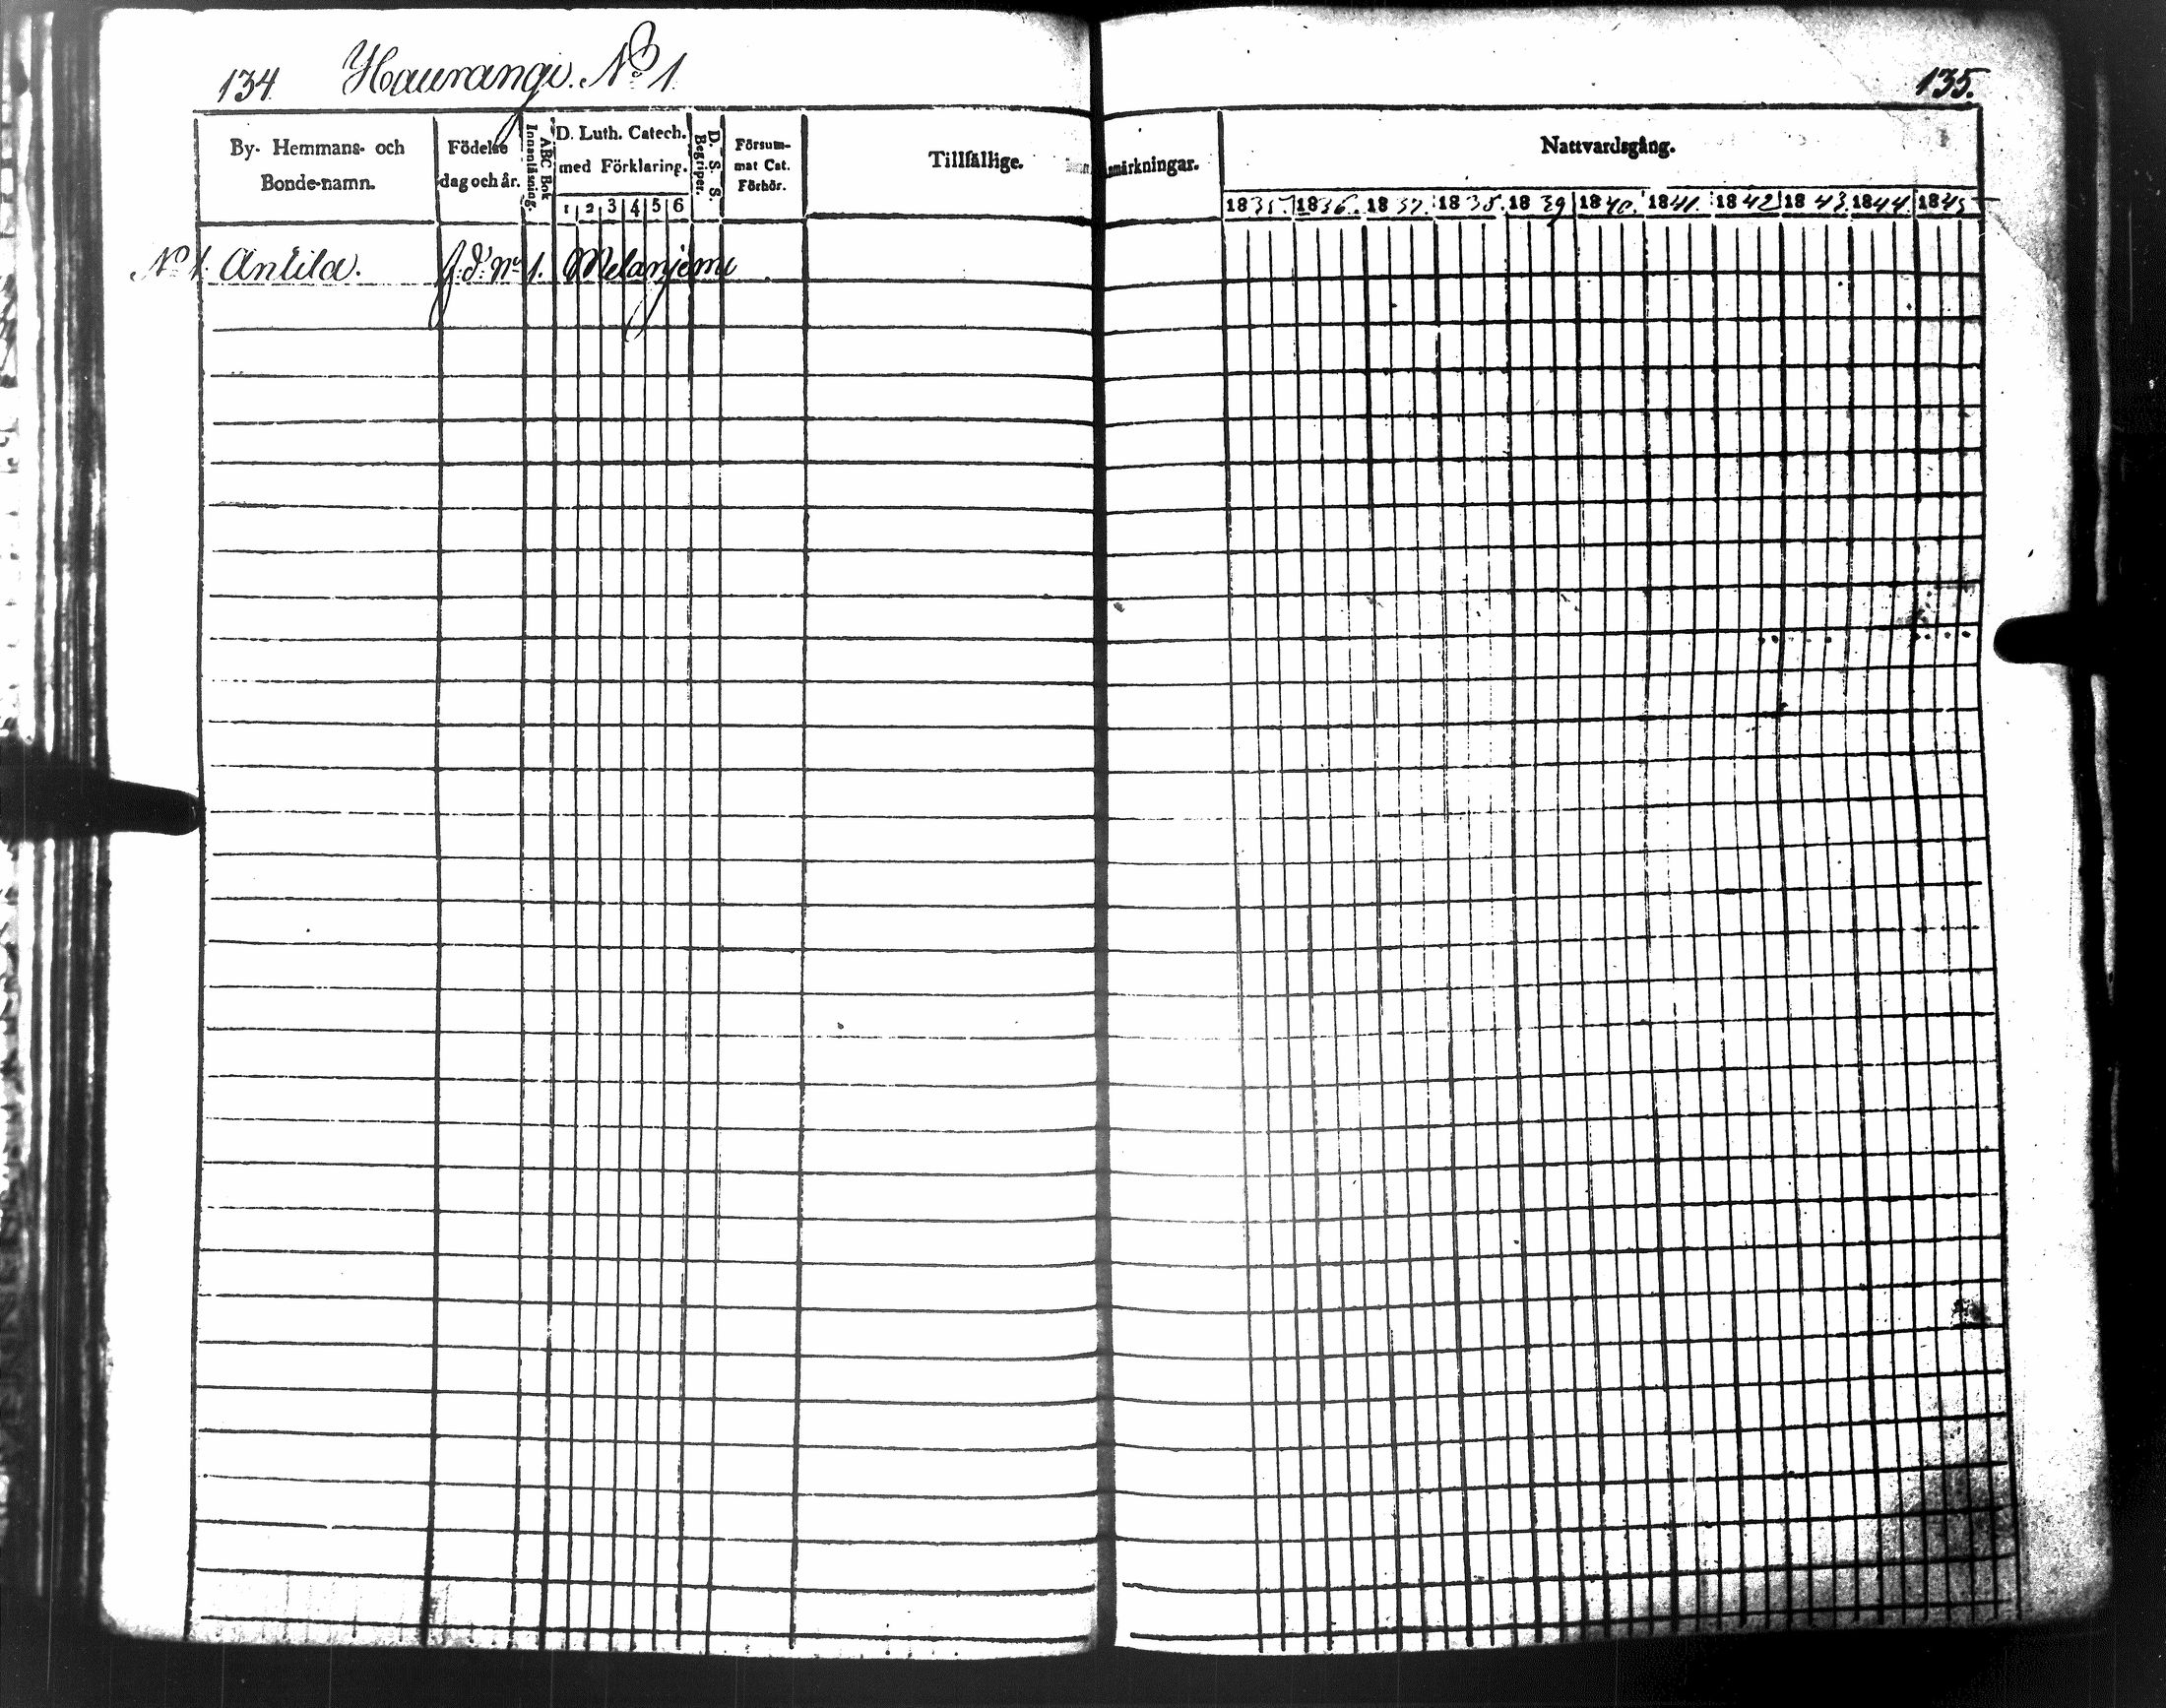 134. Haurangi. No 1.
By- Hemmans- och
Bonde-namn.
Födelse
dag och år.
ABC Bok
Innanläsning.
D. Luth. Catech.
med Förklaring.
1 2 3 4 5 6
D. S. S.
Begriper.
Försum-
mat Cat.
Förhör.
Tillfällige.
No 1. Antila. No 1.
135.
Anmärkningar.
Nattvardsgång.
1835. 1836. 1837. 1838. 1839 1840. 1841. 1842 1843. 1844. 1845